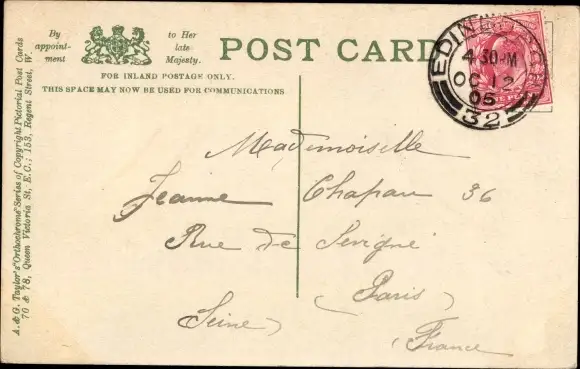 By appoint-ment
to Her late Majesty.
POST CARD
FOR INLAND POSTAGE ONLY.
THIS SPACE MAY NOW BE USED FOR COMMUNICATIONS
A. & G. Taylor's "Orthochrome" Series of Copyright Pictorial Post Cards
70 & 78, Queen Victoria St, E.C.; 153, Regent Street, W.
4 30 PM
OC 12
05
32
Mademoiselle
Jeanne Chapau 36
Rue de Sevigné
(Paris)
Seine)
(France